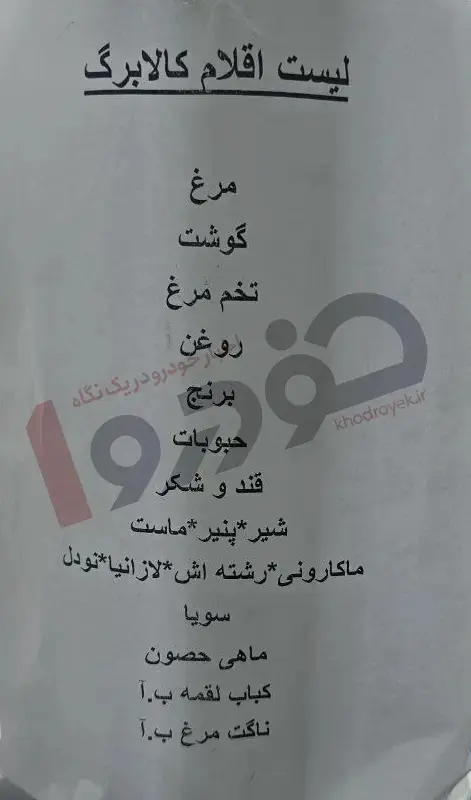 لیست اقلام کالابرگ
مرغ
گوشت
تخم مرغ
روغن
اخبار خودرو در یک نگاه
خودرو۱
khodroyek.ir
برنج
حبوبات
قند و شکر
شیر*پنیر*ماست
ماکارونی*رشته اش*لازانیا*نودل
سویا
ماهی حصون
کباب لقمه ب.آ
ناگت مرغ ب.آ